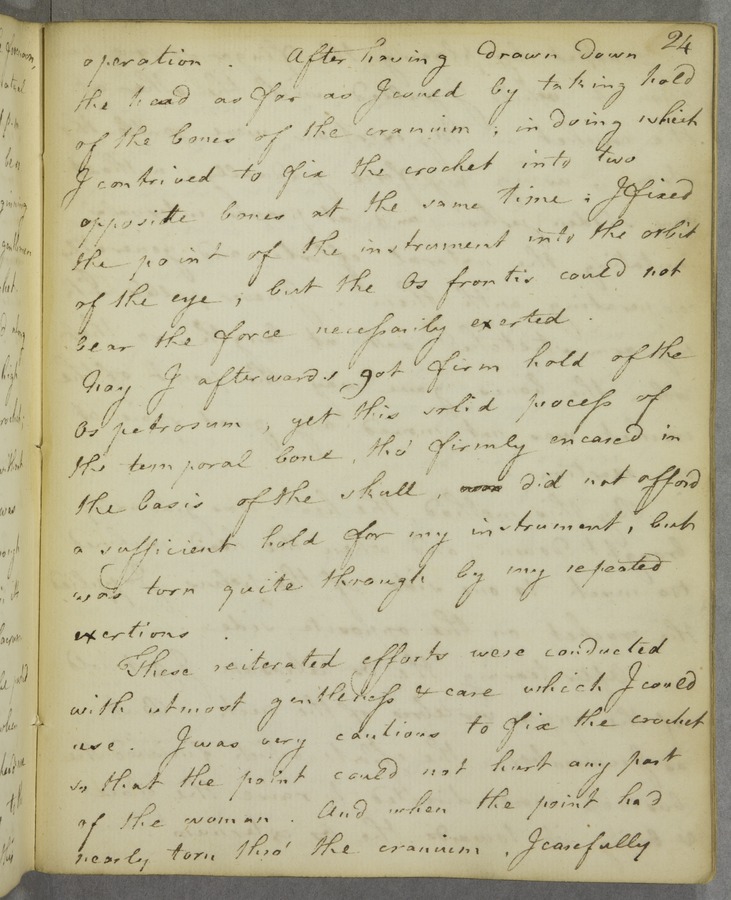 24
operation . After having drawn down
the head as far as I coued by taking hold
of the bones of the cranium ; in doing which
I contrived to fix the crochet into two
opposite bones at the same time : I fixed
the point of the instrument into the orbit
of the eye ; but the Os frontis could not
bear the force necessarily exerted .
Nay I afterwards got firm hold of the
Os petrosum , yet this solid process of
the temporal bone, tho' firmly encased in
the basis of the skull , did not afford
a sufficient hold for my instrument, but
was torn quite through by my repeated
exertions .
These reiterated efforts were conducted
with utmost gentleness & care which I could
use . I was very cautious to fix the crochet
so that the point could not hurt any part
of the woman . And when the point had
nearly torn thro' the cranium , I carefully